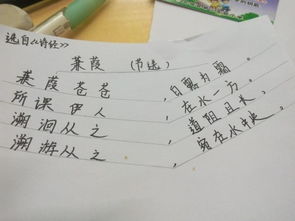 选自《诗经》
蒹葭 (节选)
蒹葭苍苍，白露为霜。
所谓伊人，在水一方。
溯洄从之，道阻且长。
溯游从之，宛在水中央。